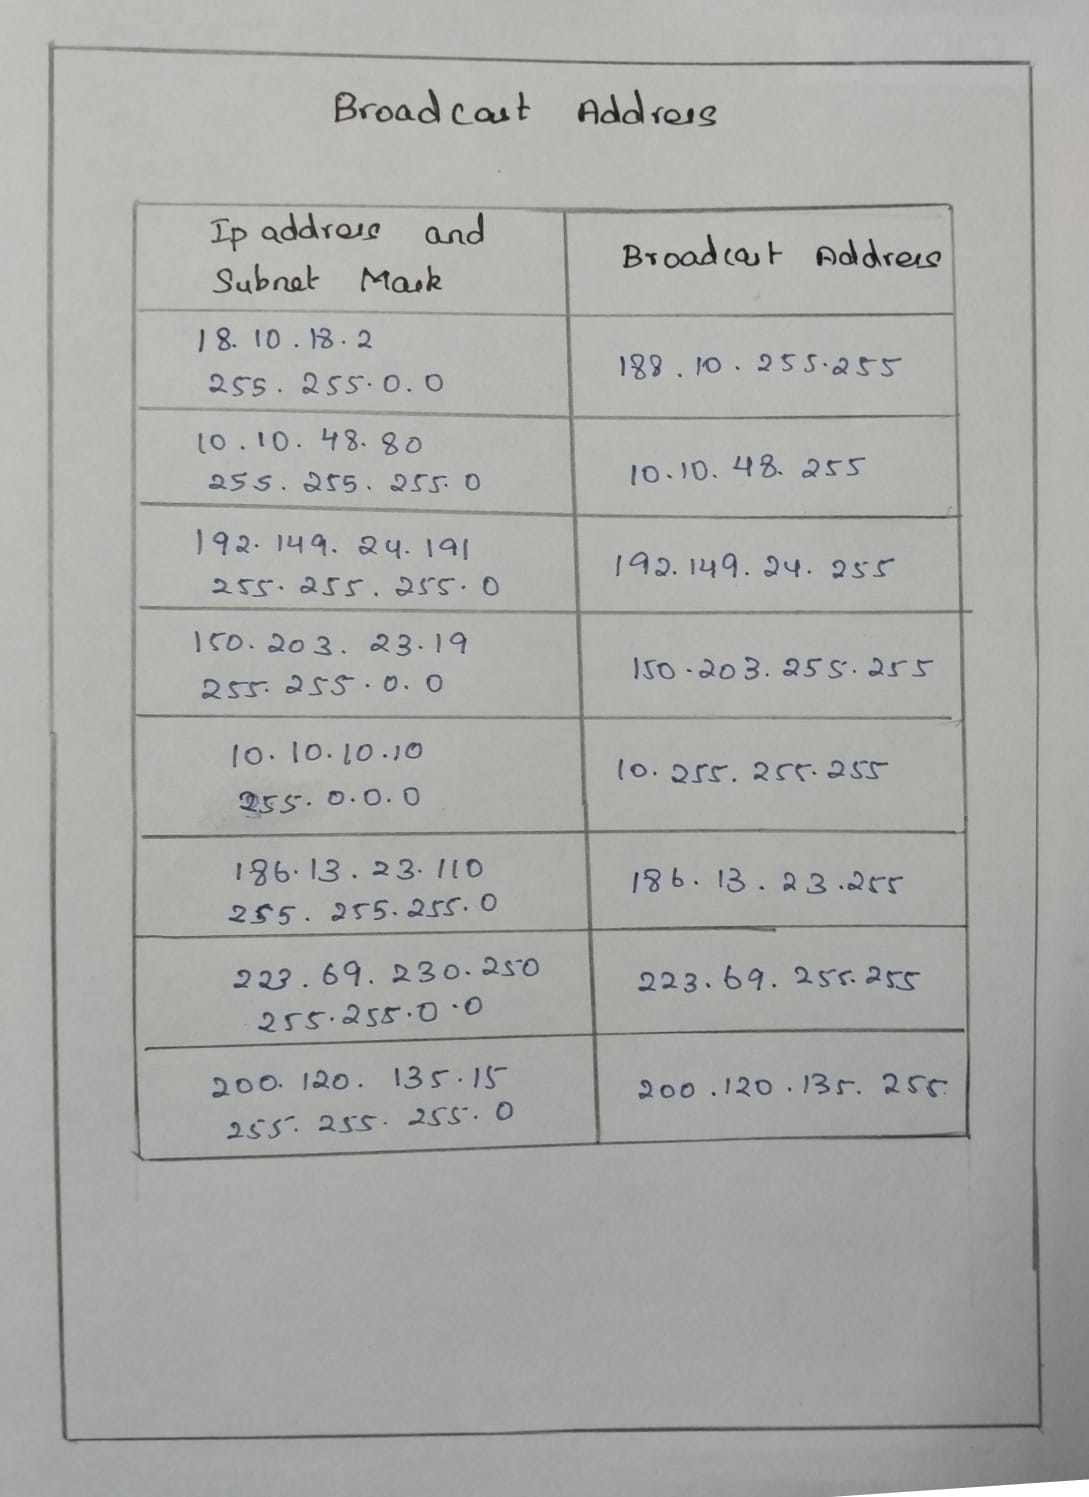 Broadcast Address
Ip address and
Subnet Mask
Broadcast Address
18.10.18.2
255.255.0.0
188.10.255.255
10.10.48.80
255.255.255.0
10.10.48.255
192.149.24.191
255.255.255.0
192.149.24.255
150.203.23.19
255.255.0.0
150.203.255.255
10.10.10.10
255.0.0.0
10.255.255.255
186.13.23.110
255.255.255.0
186.13.23.255
223.69.230.250
255.255.0.0
223.69.255.255
200.120.135.15
255.255.255.0
200.120.135.255.